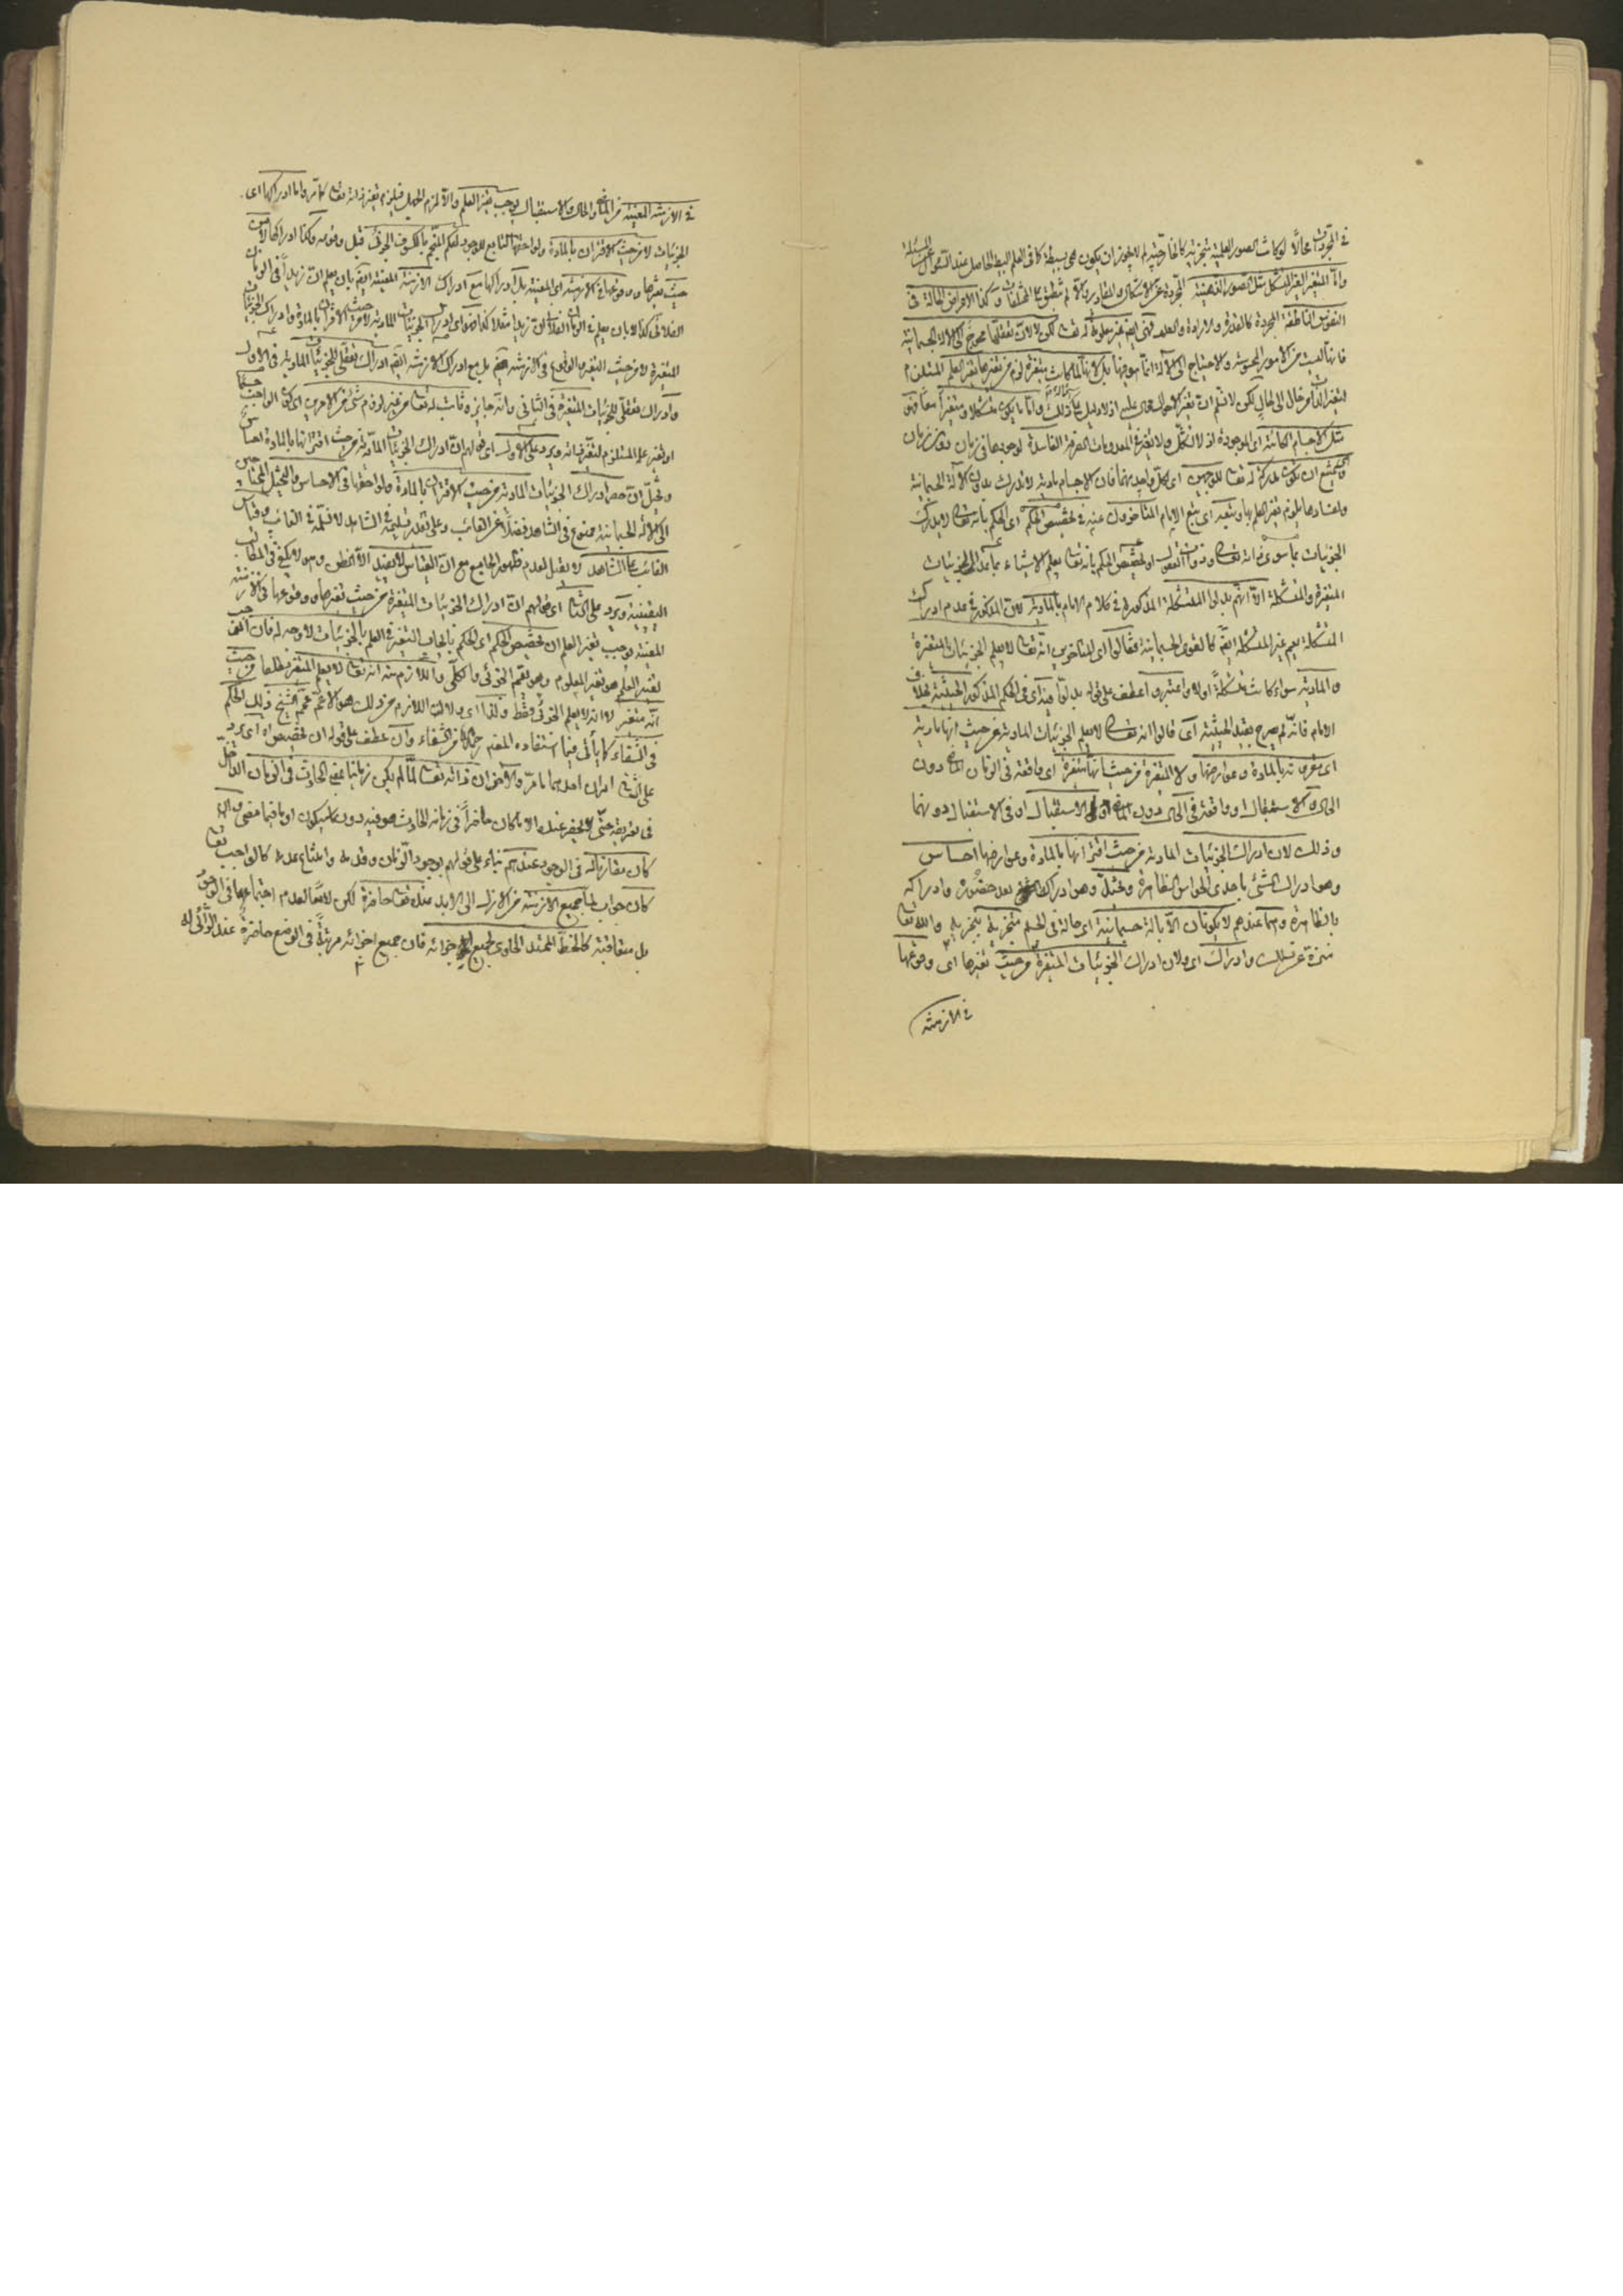 في المجردات محالا لو كانت الصور العلمية متجزية كالخارجية لم لا يجوز ان يكون هي بسيطة كما في العلم البسيط الحاصل عند السؤال
واما المتغير الغير المتشكل مثل الصور الذهنية المجردة عن الاشكال والمقادير والا لم تنطبق على المختلفات وكذا الاعراض الحالة في
النفوس الناطقة المجردة كالقدرة والارادة والعلم فهي ايضا غير معلومة له تعالى لكن لا لان تعقلها محوج الى الآلة الجسمانية
فانها ليست من الامور المحسوسة والاحتياج الى الآلة انما هو فيها بل لانها لما كانت متغيرة لزم من تغيرها تغير العلم المستلزم
لتغير الذات من حال الى حال لكن لا نسلم ان تغير الاحوال محال عليه اذ لا دليل على ذلك واما ما يكون متشكلا ومتغيرا معا فهي
مثل الاجسام الكائنة اي الموجودة اذ لا تشكل ولا تغير في المعدومات الصرفة الفاسدة لوجودها في زمان دون زمان
ويمتنع ان يكون مدركة له تعالى للوجهين اي لكل واحد منهما فان الاجسام مادية لا تدرك بدون الآلة الجسمانية
وفسادها يلزم تغير العلم بها وتبعه اي تبع الامام المتاخرون عنه في تخصيص الحكم اي الحكم بانه تعالى لا يدرك
الجزئيات بما سوى ذاته تعالى وذوات العقول او تخصيص الحكم بانه تعالى يعلم الاشياء بما عدا الجزئيات
المتغيرة والمتشكلة الا انهم بدلوا المتشكلة المذكورة في كلام الامام بالمادية لان المذكور في عدم ادراك
المتشكلة يعم غير المتشكلة ايضا كالقوى الجسمانية فقالوا اي المتاخرون انه تعالى لا يعلم الجزئيات المتغيرة
والمادية سواء كانت متشكلة او لا واعتبروا عطف على قوله بدلوا فيه اي في الحكم المذكور الحيثية بخلاف
الامام فانه لم يصرح بقيد الحيثية اي قالوا انه تعالى لا يعلم الجزئيات المادية من حيث انها مادية
اي مقرونة بالمادة وعوارضها ولا المتغيرة من حيث انها متغيرة اي واقعة في الزمان الماضي دون
الحال والاستقبال او واقعة في الحال دون الماضي والاستقبال او في الاستقبال دونهما
وذلك لان ادراك الجزئيات المادية من حيث اقترانها بالمادة وعوارضها احساس
وهو ادراك الشيء باحدى الحواس الظاهرة وتخيل وهو ادراك الشيء بعد حضوره وادراكه
بالظاهرة وهما عندهم لا يكونان الا بآلة جسمانية اي حالة في الجسم متجزية بتجزيه والله تعالى
منزه عن ذلك وادراك اي ولان ادراك الجزئيات المتغيرة من حيث تغيرها اي وقوعها
في الازمنة
في الازمنة المعينة من الماضي والحال والاستقبال يوجب تغير العلم والا لزم الجهل فيلزم تغير ذاته تعالى كما مر واما ادراكها اي
الجزئيات لا من حيث الاقتران بالمادة ولواحقها التابع للوجود كعلم المنجم بالكسوف الجزئي قبل وقوعه وكذا ادراكها لا من
حيث تغيرها ووقوعها في الازمنة اي المعينة بل ادراكها مع ادراك الازمنة المعينة ايضا بان يعلم ان زيدا في الزمان
الفلاني كذا لا بان يعلم في الزمان الفلاني ان زيدا مثلا كذا فهو اي ادراك الجزئيات المادية لا من حيث الاقتران بالمادة وادراك الجزئيات
المتغيرة لا من حيث التغير والوقوع في الازمنة بل مع ادراك الازمنة ايضا ادراك تعقلي للجزئيات المادية في الاول
وادراك تعقلي للجزئيات المتغيرة في الثاني وانه جايز وثابت له تعالى من غير لزوم شيء من الامرين اي كون الواجب جسما
او تغير علمه المستلزم لتغير ذاته ويرد على الاول اي قولهم ان ادراك الجزئيات المادية من حيث اقترانها بالمادة احساس
وتخيل ان حصر ادراك الجزئيات المادية من حيث الاقتران بالمادة ولواحقها في الاحساس والتخيل المحتاجين
الى الآلة الجسمانية ممنوع في الشاهد فضلا عن الغائب وعلى تقدير تسليمه في الشاهد لا نسلمه في الغائب وقياس
الغائب على الشاهد لا يقبل لعدم ظهور الجامع مع ان القياس لا يفيد الا الظن وهو لا يكفي في المطالب
اليقينية ويرد على الثاني اي قولهم ان ادراك الجزئيات المتغيرة من حيث تغيرها ووقوعها في الازمنة
المعينة يوجب تغير العلم ان تخصيص الحكم اي الحكم بايجاب التغير في العلم بالجزئيات لا وجه له فان موجب
تغير العلم هو تغير المعلوم وهو يعم الجزئي والكلي واللازم منه انه تعالى لا يعلم المتغير مطلقا من حيث
انه متغير لا انه لا يعلم الجزئي فقط ولذا اي ولان اللازم من ذلك هو الاعم عمم الشيخ ذلك الحكم
في الشفاء كما يأتي فيما استفاده المص من الشفاء وان عطف على قوله ان تخصيص اه اي يرد
على الثاني امران احدهما ما مر والآخر ان ذاته تعالى لما لم يكن زمانيا بمعنى الحادث في الزمان الداخل
في تعريفه حتى لا يحضر عنده الا ما كان حاضرا في زمانه الحادث هو فيه دون ما سيكون او ما فيما مضى وان
كان مقارنا له في الوجود عندهم بناء على قولهم بوجود الزمان وقدمه وامتناع عدمه كالواجب تعالى
كان جواب لما جميع الازمنة من الازل الى الابد عنده تعالى حاضرة لكن لا معا لعدم اجتماعها في الوجود
بل متعاقبة كالخط الممتد الحاوي لجميع اجزائه فان جميع اجزائه مرتبة في الوضع حاضرة عند الرائي له